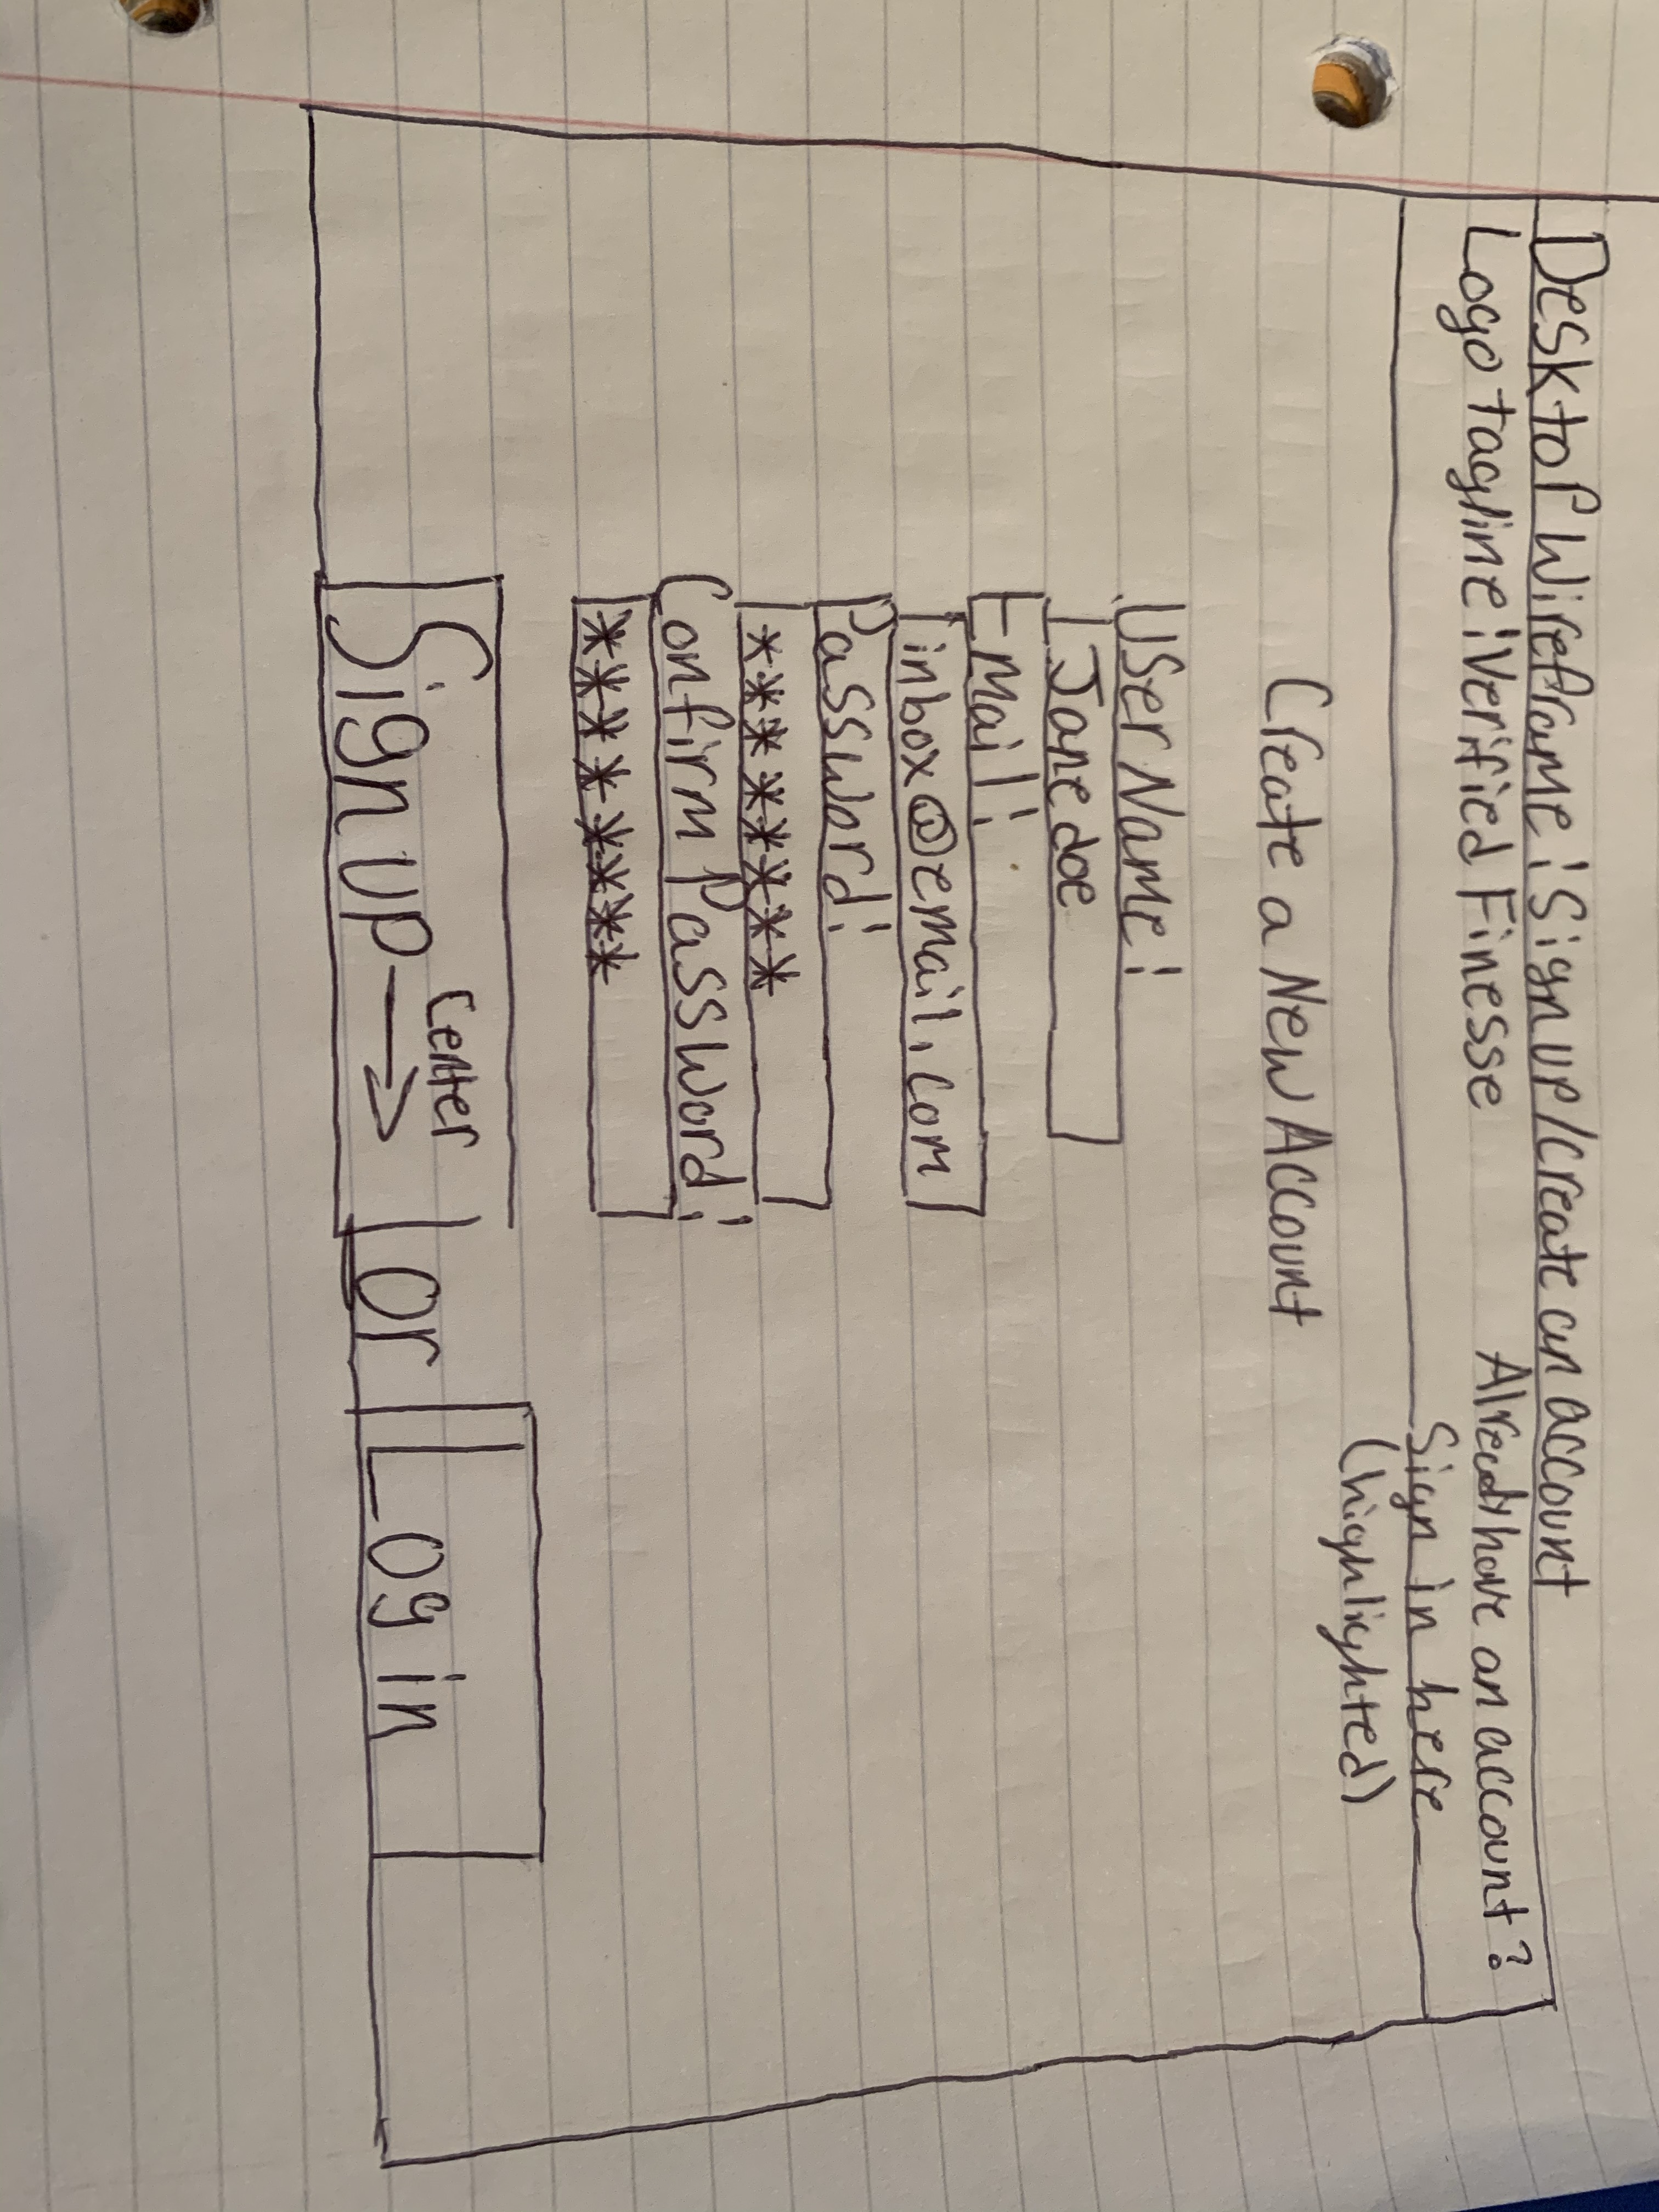 Desktop Wireframe: Sign up/create an account
Logo tagline: Verified Finesse
Already have an account?
Sign in here
(highlighted)
Create a New Account
UserName:
Jane doe
Email:
inbox@email.com
Password:
*******
Confirm Password:
********
Sign up → center
or
Log in